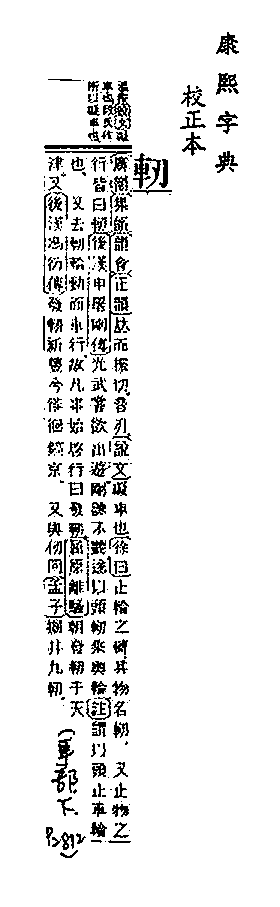 康熙字典
校正本
軔
廣韻集韻韻會正韻𠀤而振切音刃說文礙車也徐曰止輪之轉其物名軔 又止物之
行皆曰軔後漢申屠剛傳光武嘗欲出遊剛諫不聽遂以頭軔乘輿輪註謂以頭止車輪
也 又去軔輪動而車行故凡事始啓行曰發軔屈原離騷朝發軔于天
津又後漢馮衍傳發軔新豐兮徘徊鎬京 又與仞同孟子掘井九軔
(車部下
P2812)